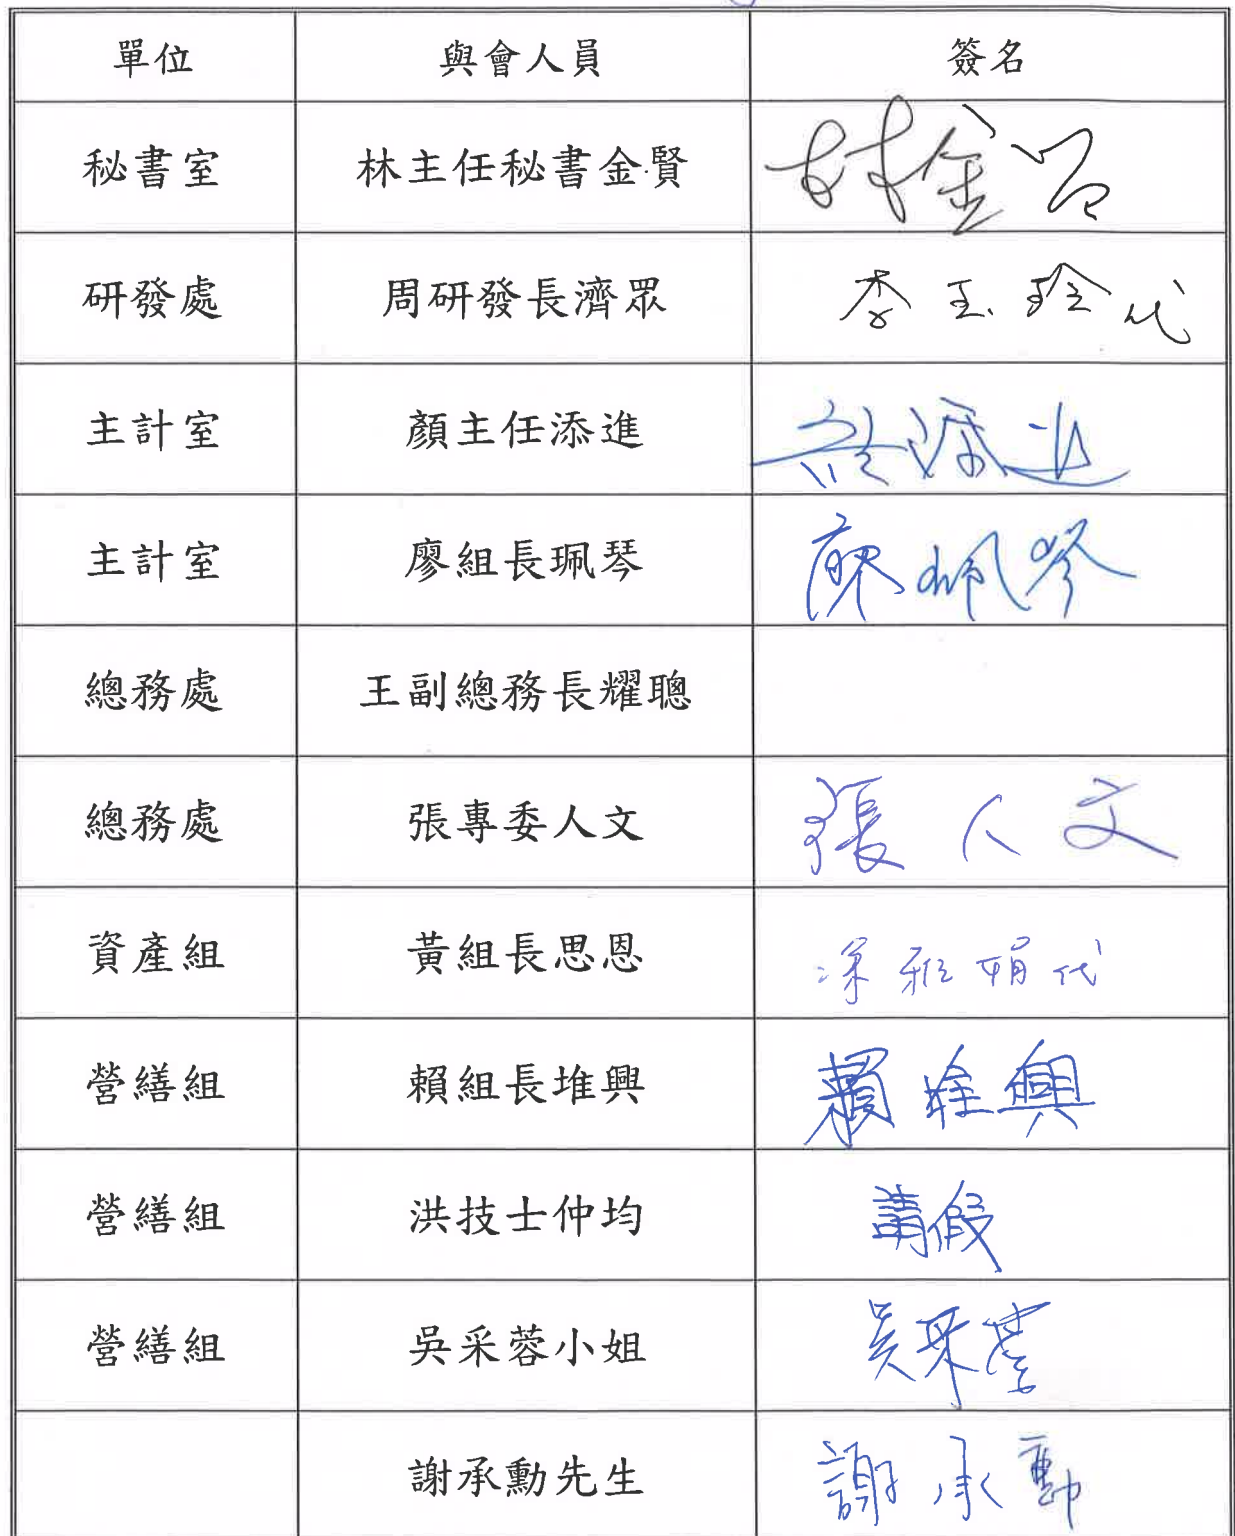 單位 與會人員 簽名
秘書室 林主任秘書金賢 林金賢
研發處 周研發長濟眾 李玉玲代
主計室 顏主任添進 顏添進
主計室 廖組長珮琴 廖珮琴
總務處 王副總務長耀聰
總務處 張專委人文 張人文
資產組 黃組長思恩 雅娟代
營繕組 賴組長堆興 賴堆興
營繕組 洪技士仲均 請假
營繕組 吳采蓉小姐 吳采蓉
謝承勳先生 謝承勳